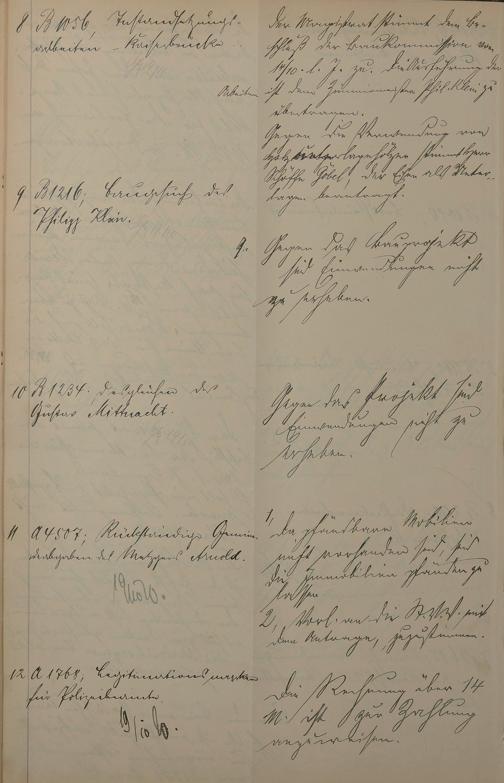 8 B 1056, Instandsetzungs-
arbeiten Kaiserbrücke
Der Magistrat stimmt dem Be-
schluß der Baukommission vom
14/10. l. J. zu. Die Ausführung der
Arbeiten
ist dem Zimmermeister Phil. Klein zu
übertragen.
Gegen die Verwendung von
Holz stimmt Herr
Schöffe Göbel, der Eisen als Unter-
lagen beantragt.
9 B 1216, Baugesuch des
Philipp Klein.
9. Gegen das Bauprojekt
sind Einwendungen nicht
zu erheben.
10 B 1234. desgleichen des
Gustav Mittnacht.
Gegen das Projekt sind
Einwendungen nicht zu
erheben.
11 A 4507; Rückständige Gemein-
deabgaben des Metzgers Arnold.
1, Da pfändbare Mobilien
nicht vorhanden sind, sind
die Immobilien pfänden zu
lassen
2, Vorl. an die St. V. V. mit
dem Antrage, zuzustimmen.
12 A 1768, Legitimationsmarken
für Polizeibeamte
19/10
Die Rechnung über 14
M. ist zur Zahlung
anzuweisen.